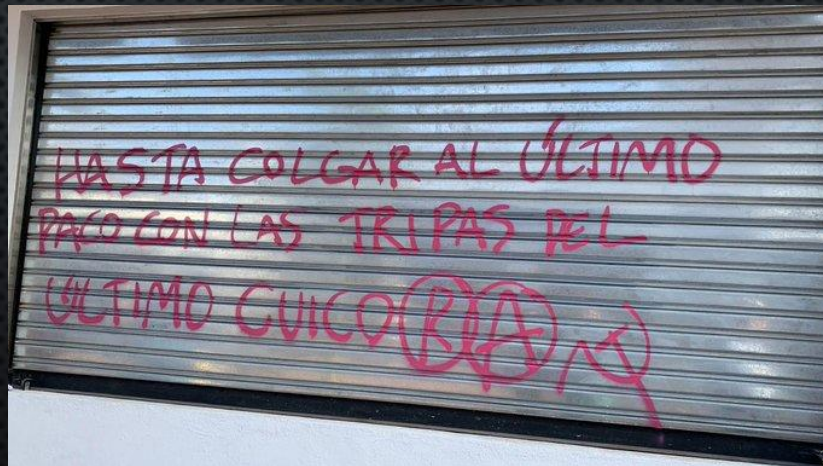 HASTA COLGAR AL ÚLTIMO
PACO CON LAS TRIPAS DEL
ÚLTIMO CUICO K A